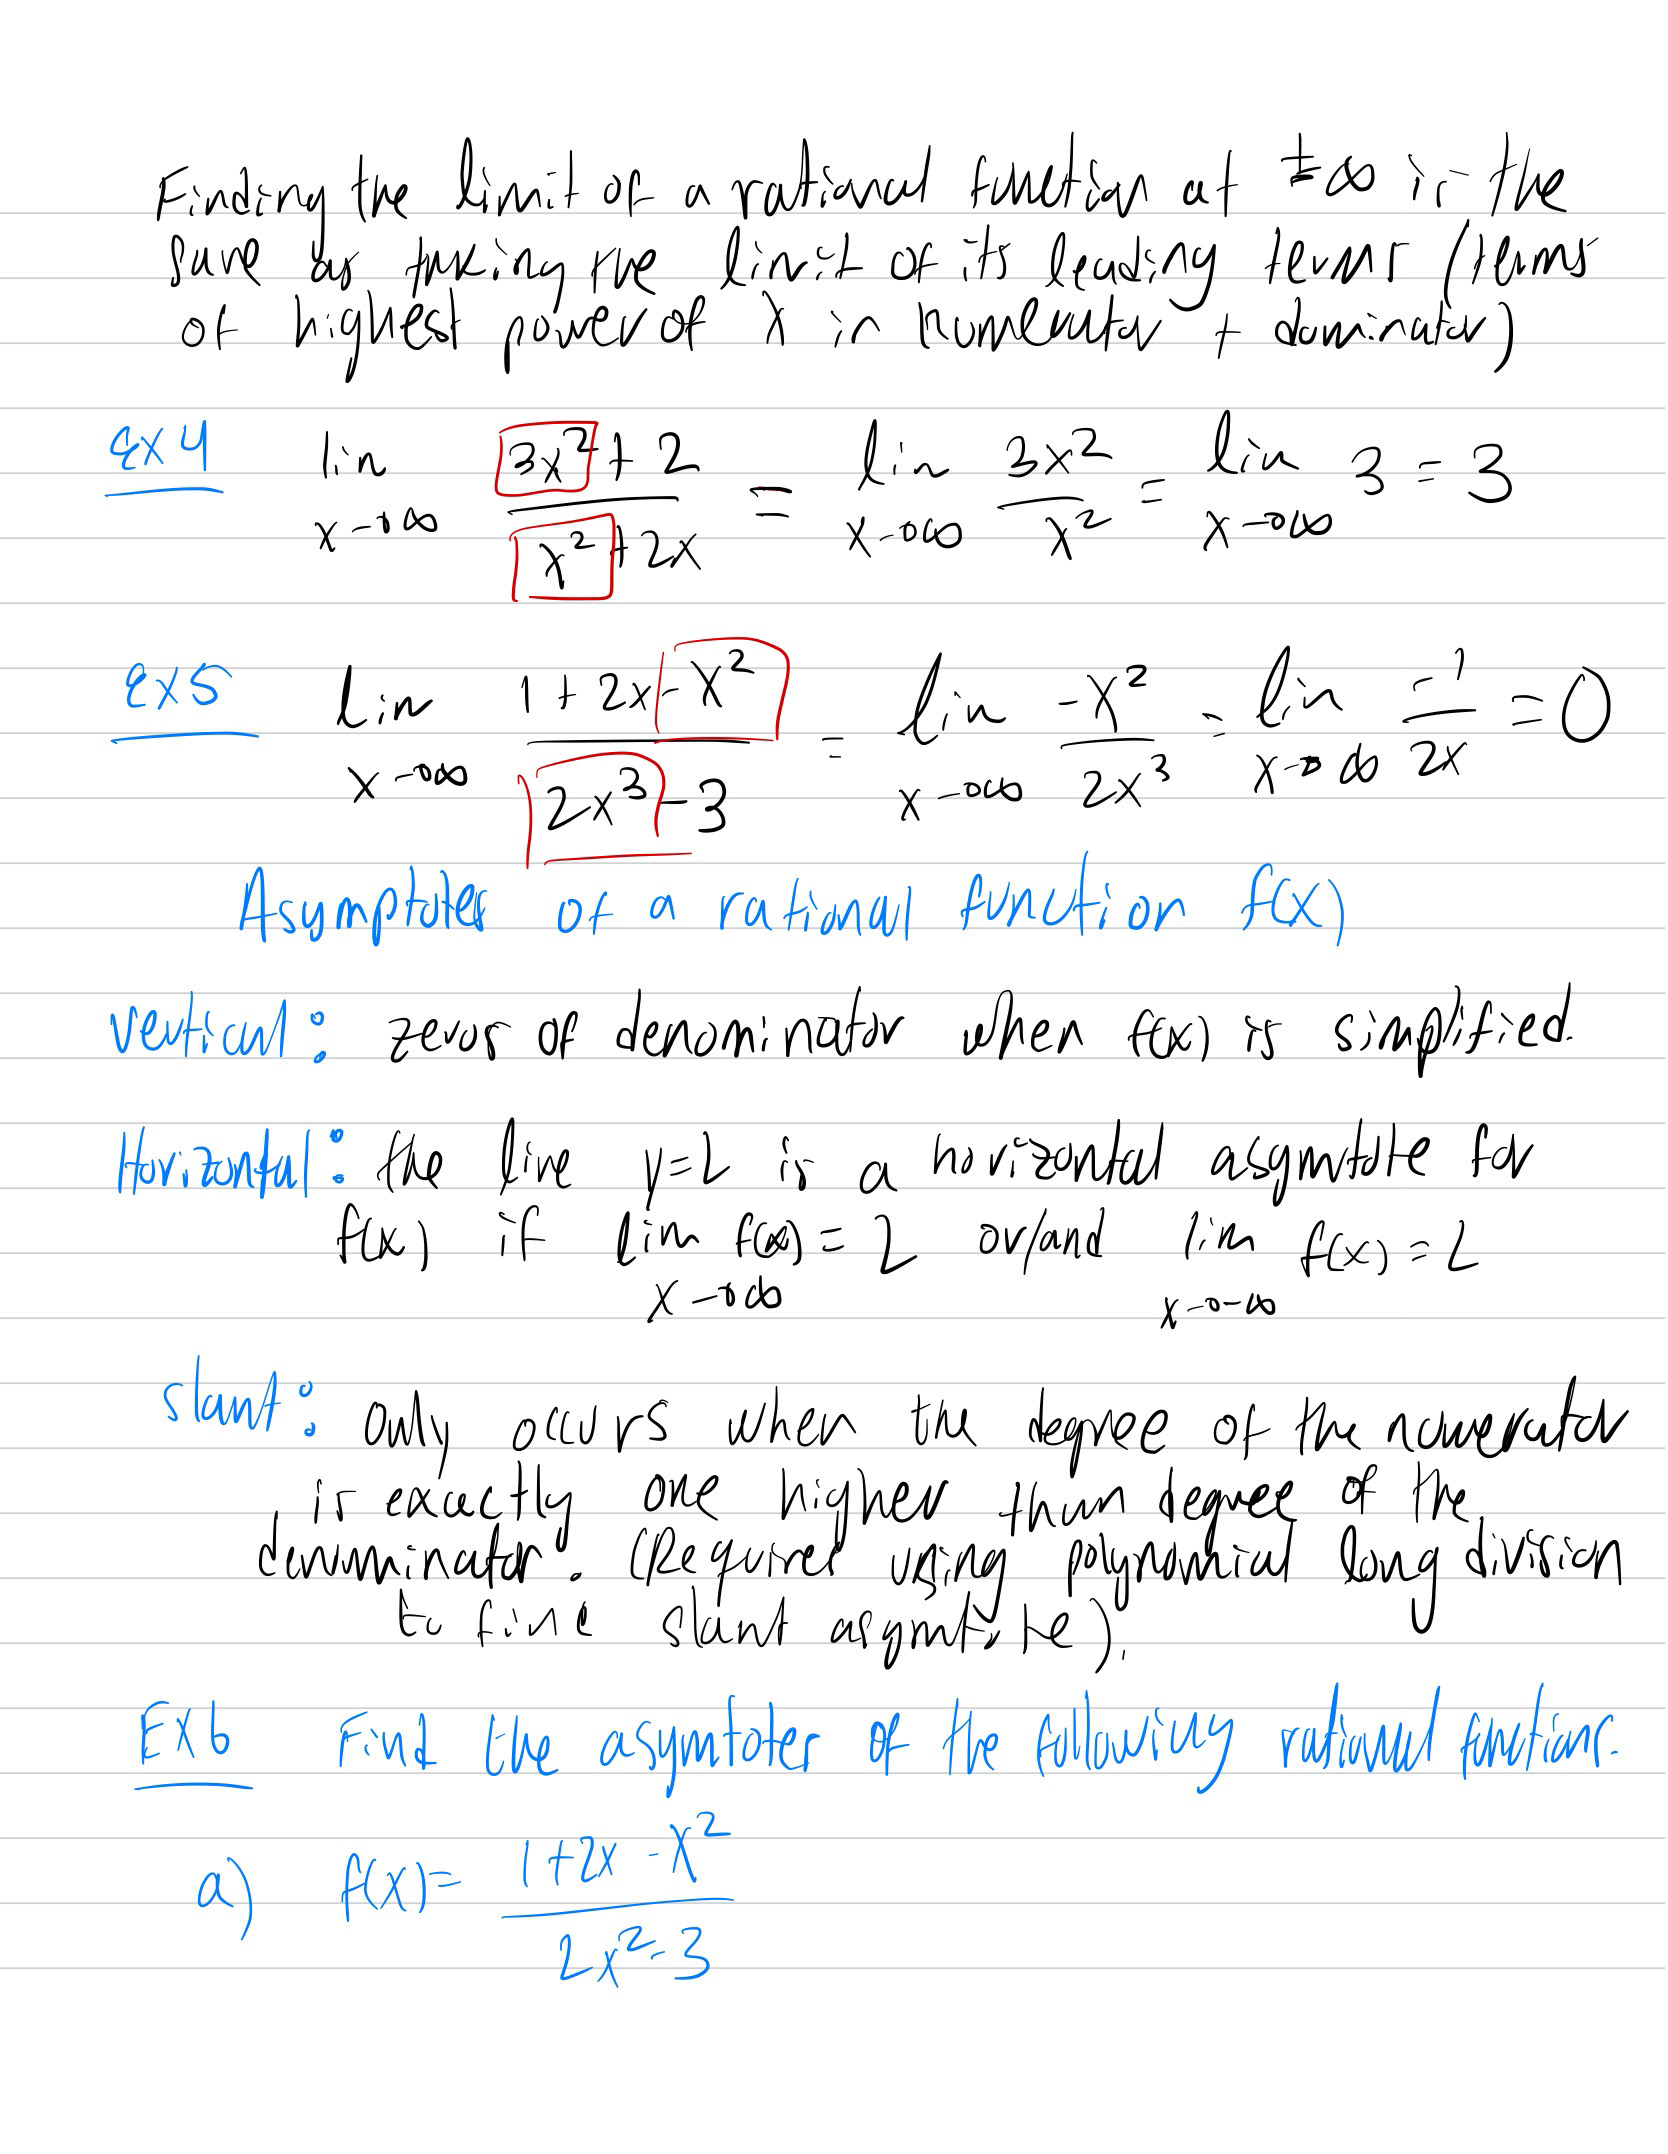 Finding the limit of a rational function at ±∞ is the
same as taking the limit of its leading terms (terms
of highest power of x in numerator + dominator)
Ex 4 lim x→∞ (3x² + 2)/(x² + 2x) = lim x→∞ 3x²/x² = lim x→∞ 3 = 3
Ex 5 lim x→∞ (1 + 2x - x²)/(2x³ - 3) = lim x→∞ -x²/2x³ = lim x→∞ -1/2x = 0
Asymptotes of a rational function f(x)
vertical: zeros of denominator when f(x) is simplified.
Horizontal: the line y=L is a horizontal asymtote for
f(x) if lim x→∞ f(x) = L or/and lim x→-∞ f(x) = L
slant: only occurs when the degree of the numerator
is exactly one higher than degree of the
denominator. (Requires using polynomial long division
to find slant asymtote).
Ex 6 Find the asymtotes of the following rational functions.
a) f(x) = (1+2x - x²)/(2x² - 3)